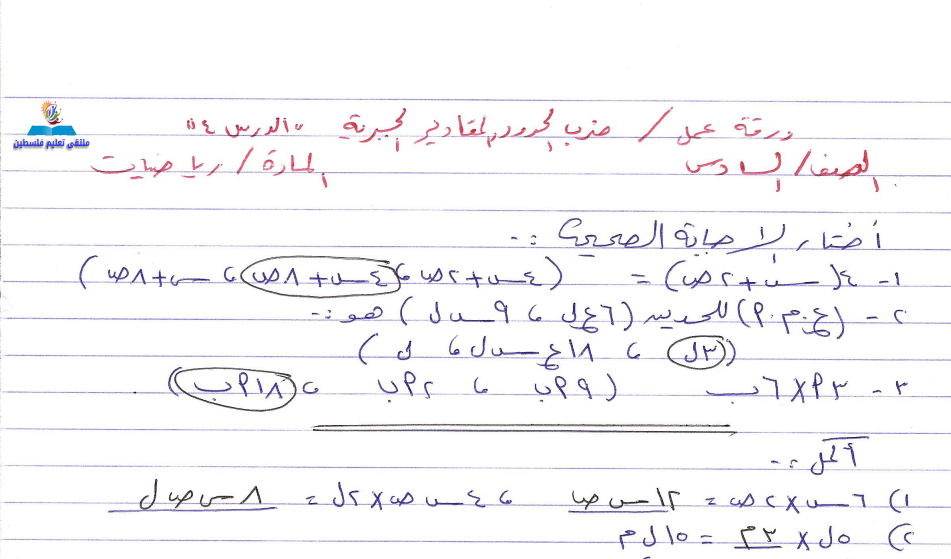 ملتقى تعليم فلسطين
ورقة عمل / ضرب الحدود والمقادير الجبرية "الدرس ٤"
الصف / السادس المادة / رياضيات
أختار الإجابة الصحيحة :-
١- ٤(س + ٢ص) = (٤س + ٢ص ، ٤س + ٨ص ، س + ٨ص)
٢- (ع.م.أ) للحدين (٦ع ل ، ٩س ل) هو :-
(٣ل ، ١٨ع س ل ، ل)
٣- ٣أ × ٦ب (٩أب ، ٢أب ، ١٨أب).
أكمل :-
١) ٦س × ٢ص = ١٢س ص ، ٤س ص × ٢ل = ٨س ص ل
٢) ٥ل × ٢م = ١٠ل م